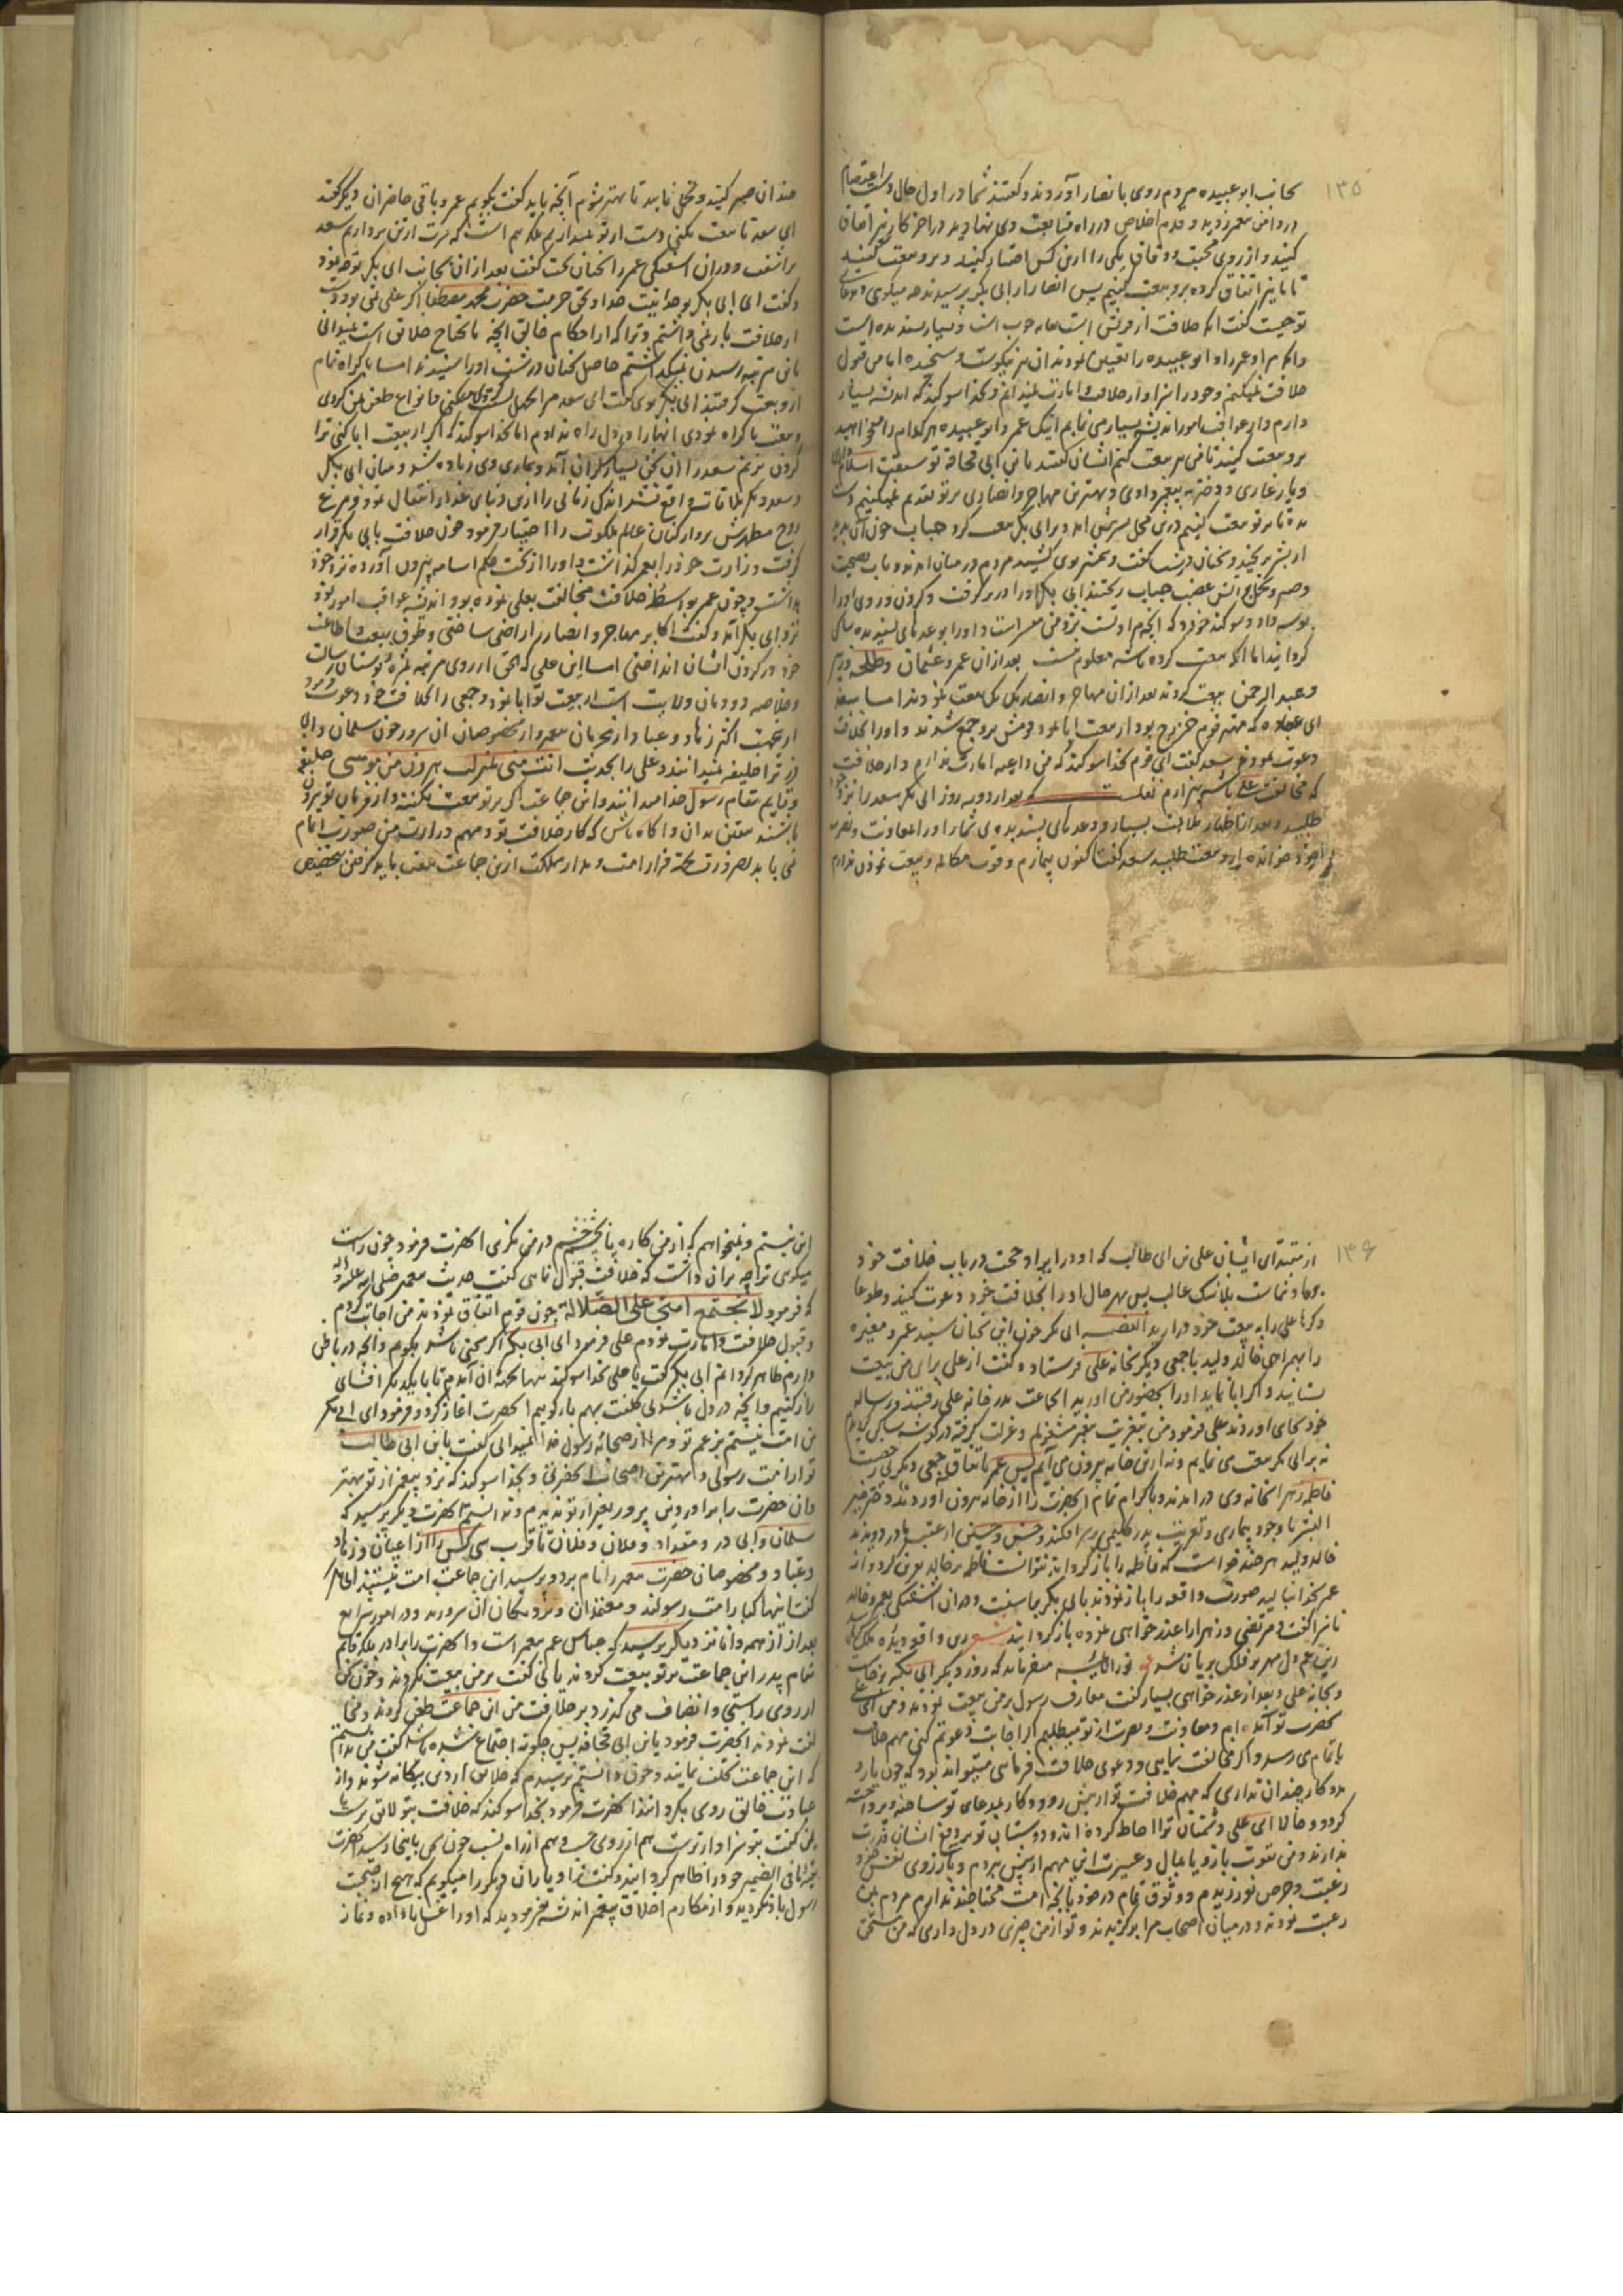 ۱۳۵
بجانب ابو عبیده مردم روی بانصار آوردند و گفتند شما در اول حال دست اعتصام
در دامن پیغمبر زدید و قدم اخلاص در راه متابعت وی نهادید در آخر کار نیز اتفاق
کنید و از روی محبت و وفاق یکی را ازین کس اختیار کنید و برو بیعت کنید
تا ما نیز اتفاق کرده برو بیعت کنیم پس انصار از ابی بکر پرسیدند چه میگوی و
تو چیست گفت آنکه خلافت از قریش است خوب است و بسیار پسندیده است
و آنکه مرا و عمر را و ابو عبیده را تعیین نمودند آن نیز نیکوست و سنجیده اما من قبول
خلافت نمیکنم و خود را سزاوار خلافت و امارت نمیدانم و بخدا سوکند که اندیشه بسیار
دارم و از عواقب امور اندیشه بسیار می نمایم اینک عمر و ابو عبیده هر کدام را میخواهید
برو بیعت کنید تا من هم بیعت کنم ایشان گفتند یا بن ابی قحافه تو سبقت اسلام داری
و یار غاری و دختر به پیغمبر دادی و بهترین مهاجر و انصاری بر تو تقدیم نمیکنیم دست
بده تا بر تو بیعت کنیم درین محل بشیر پیش آمد و بر ابی بکر بیعت کرد حباب چون آن بدید
از بشیر برنجید و سخنان درشت گفت و شمشیر بروی کشید مردم در میان آمدند و باب نصیحت
و صبر و تحمل آتش غضب حباب ریختند ابی بکر او را در بر گرفت و گردن و روی او را
بوسه داد و سوکند خورد که آنچه مراد تست نزد من میسر است و او را بوعدهای پسندیده ساکن
گردانید اما آنکه بیعت کرده باشد معلوم نیست بعد از آن عمر و عثمان و طلحه و زبیر
و عبد الرحمن بیعت کردند بعد از آن مهاجر و انصار یک یک بیعت نمودند اما سعد
ابن عباده که مهتر قوم خزرج بود از بیعت ابا نمود قومش برو جمع شدند و او را بخلافت
دعوت نمودند سعد گفت ای قوم بخدا سوکند که من داعیه امارت ندارم و از خلافت
که مخالفت علی باشد بیزارم بعد از دو سه روز ابی بکر سعد را نزد خود
طلبید و بعد از اظهار ملاطفت بسیار و وعدهای پسندیده شما را و را معاونت و نصرت
خوانده از او بیعت طلبید سعد گفت اکنون بیمارم و قوت مکالمه و بیعت نمودن ندارم
چندان صبر کنید و تحمل نمایید تا بهتر شوم آنچه باید گفت بگویم عمر و باقی حاضران دیگر گفتند
ای سعد تا بیعت نکنی دست از تو نمیداریم بلکه بیم است که سرت از تن برداریم سعد
برآشفت و در آن آشفتگی عمر را سخنان سخت گفت بعد از آن بجانب ابی بکر توجه نمود
و گفت ای ابی بکر بوحدانیت خدا و بحق حرمت حضرت محمد مصطفا اگر علی نمی بود دست
از خلافت باز نمی داشتم و ترا که از احکام خالق آنچه ما یحتاج خلایق است نمیدانی
باین مرتبه رسیدن نمیگذاشتم حاصل سخنان درشت او را شنیدند اما باکراه تمام
ازو بیعت گرفتند ابی بکر بوی گفت ای سعد مرا تحمل و انواع طعن بمن کردی
و بیعت باکراه نمودی اینها را در دل راه ندادم اما بخدا سوکند که اگر از بیعت ابا کنی ترا
گردن بزنم سعد را این سخن بسیار گران آمد و بیماری وی زیاده شد و میان ابی بکر
و سعد دیگر ملاقات واقع نشد اندک زمانی را ازین دنیای غدار انتقال نمود و مرغ
روح مطهرش پروازکنان عالم ملکوت را اختیار فرمود چون خلافت بابی بکر قرار
گرفت وزارت خود را بعمر گذاشت و او را از تحت حکم اسامه بیرون آورده نزد خود
بداشت و چون عمر بواسطه خلافت مخالفت بعلی نموده بود و اندیشه عواقب امور نمود
نزد ابی بکر آمد و گفت اکابر مهاجر و انصار را راضی ساختی و طوق بیعت و اطاعت
خود در گردن ایشان انداختی اما این علی که بحق از روی مرتبه ثمره بوستان رسالت
و خلاصه دودمان ولایت است از بیعت تو ابا نمود و جمعی را بخلافت خود دعوت نمود
ازینجهت اکثر زهاد و عباد از محرمان پیغمبر و از مخصوصان آن سرور چون سلمان و ابی
ذر ترا خلیفه نمیدانند و علی را بحدیث انت منی بمنزلت هرون من موسی خلیفه
و قایم مقام رسول خدا میدانند و این جماعت اگر بر تو بیعت نکنند و از فرمان تو بیرون
باشند متقین بدان و آگاه باش که کار خلافت تو و مهم وزارت من صورت اتمام
نمی یابد بضرورت جهة قرار امت و مدار مملکت ازین جماعت بیعت باید گرفتن بتخصیص
۱۳۶
از مقتدای ایشان علی بن ابی طالب که او در ایراد حجت در باب خلافت خود
بر ما و تماست بلا شک غالب پس بهر حال او را بخلافت خود دعوت کنید و طوعا
و کرها علی را به بیعت خود درآرید القصه ابی بکر چون این سخنان شنید عمر و مغیره
را بهمراهی خالد ولید با جمعی دیگر بخانه علی فرستاد و گفت از علی برای من بیعت
بستانید و اگر ابا نماید او را بحضور من آورید آنجماعت بدر خانه علی رفتند و رساله
خود بجای آوردند علی فرمود من بتعزیت پیغمبر مشغولم و عزلت گرفته در گوشه ساکن گردیده ام
نه بر ابی بکر بیعت می نمایم و نه ازین خانه بیرون می آیم پس عمر باتفاق جمعی دیگر بی رخصت
فاطمه زهرا بخانه وی درآمدند و باکراه تمام آنحضرت را از خانه بیرون آوردند و دختر خیر
البشر با وجود بیماری و تعزیت پدر گلیمی بر سر افکند و حسن و حسین از عقب مادر دویدند
خالد ولید هر چند خواست که فاطمه را بازگرداند نتوانست فاطمه بر خالد نفرین کرد و از
عمر بخدا نالید صورت واقعه را باز نمودند بابی بکر برآشفت و در آن آشفتگی بعمر و خالد
ناسزا گفت و مرتضی و زهرا را عذرخواهی نموده بازگردانید شعر
زین غم دل مهر بر فلک بریان شد نور الائمه میفرماید که روز دیگر ابی بکر برخاست
و بخانه علی و بعد از عذرخواهی بسیار گفت معارف رسول بر من بیعت نمودند و من ای علی
بحضرت تو آمده ام و معاونت و نصرت از تو میطلبم اگر اجابت دعوتم کنی مهم خلافت
باتمام می رسد و اگر مخالفت نمایی و دعوی خلافت فرمایی میتواند بود که چون یار و
مددکار چندان نداری که مهم خلافت تو از پیش رود و کار بمدعای تو ساخته و پرداخته
گردد و حالا ای علی دشمنان ترا احاطه کرده اند و دوستان تو بر دفع ایشان قدرت
ندارند و من بقوت بازو و یا مال و عشیرت این مهم از پیش بردم و بآرزوی نفس خود
رغبت و حرص نورزیدم و وثوق تمام در خود بآنچه امت محتاجند ندارم مردم بمن
رغبت نمودند و در میان اصحاب مرا برگزیدند و تو از من چیزی در دل داری که من مستحق
این نیستم و نمیخواهم که از من کاره یا بچشم خشم در من نگری آنحضرت فرمود چون راست
میگوی ترا چه بر آن داشت که خلافت قبول نمایی گفت حدیث پیغمبر صلی الله علیه و آله
که فرمود لا تجتمع امتی علی الضلالة چون قوم اتفاق نمودند من اجابت کردم
و قبول خلافت و امارت نمودم علی فرمود ای ابی بکر اگر سخنی باشد بگوم و آنچه در باطن
دارم ظاهر گردانم ابی بکر گفت یا علی بخدا سوکند تنها بجهة آن آمدم تا با یکدیگر افشای
راز کنیم و آنچه در دل باشد بی کلفت بهم بازگوییم آنحضرت آغاز کرد و فرمود ای ابی بکر
من امت نیستم بزعم تو و مرا از صحابه رسول خدا نمیدانی گفت یا بن ابی طالب
تو از امت رسولی و بهترین اصحاب آنحضرتی و بخدا سوکند که نزد پیغمبر از تو بهتر
و آن حضرت را برادر دینی پرور بغیر از تو ندیدم و ندانستم آنحضرت دیگر پرسید که
سلمان و ابی ذر و مقداد و فلان و فلان تا قرب سی کس را از اعیان و زهاد
و عباد و مخصوصان حضرت پیغمبر را نام برد و پرسید این جماعت امت نیستند ابی بکر
گفت اینها کبار امت رسولند و معتمدان و نزدیکان آن سرورند و در امور شرایع
بعد از آن دیگر پرسید که عباس عم پیغمبر است و آنحضرت را برادر بلکه قایم
مقام پدر این جماعت بر تو بیعت کردند یا نی گفت بر من بیعت نکردند و چون سخن
از روی راستی و انصاف می گذرد بر خلافت من این جماعت طعن کردند و مخا
لفت نمودند آنحضرت فرمود یا بن ابی قحافه پس چگونه اجتماع شده باشد گفت من ندانستم
که این جماعت تخلف نمایند و چون دانستم ترسیدم که خلایق از دین بیگانه شوند و از
عبادت خالق روی بگردانند آنحضرت فرمود بخدا سوکند که خلافت بتو لایق تر است یا
بمن گفت بتو سزاوارترست هم از روی حسب و هم از راه نسب چون سخن باینجا رسید آنحضرت
ما فی الضمیر خود را ظاهر گردانید و گفت ترا و یاران دیگر را میگویم که هیچ از صحبت
رسول یاد نکردید و از مکارم اخلاق پیغمبر اندیشه نفرمودید که او را غسل ناداده و نماز